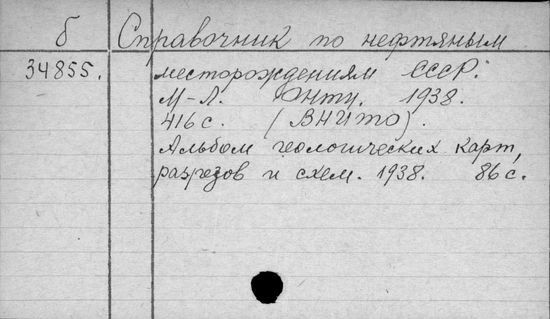 б Справочник по нефтяным
34855. месторождениям СССР.
М-Л. ОНТИ. 1938.
416 с. (ВНИТО).
Альбом геологических карт,
разрезов и схем. 1938. 86 с.